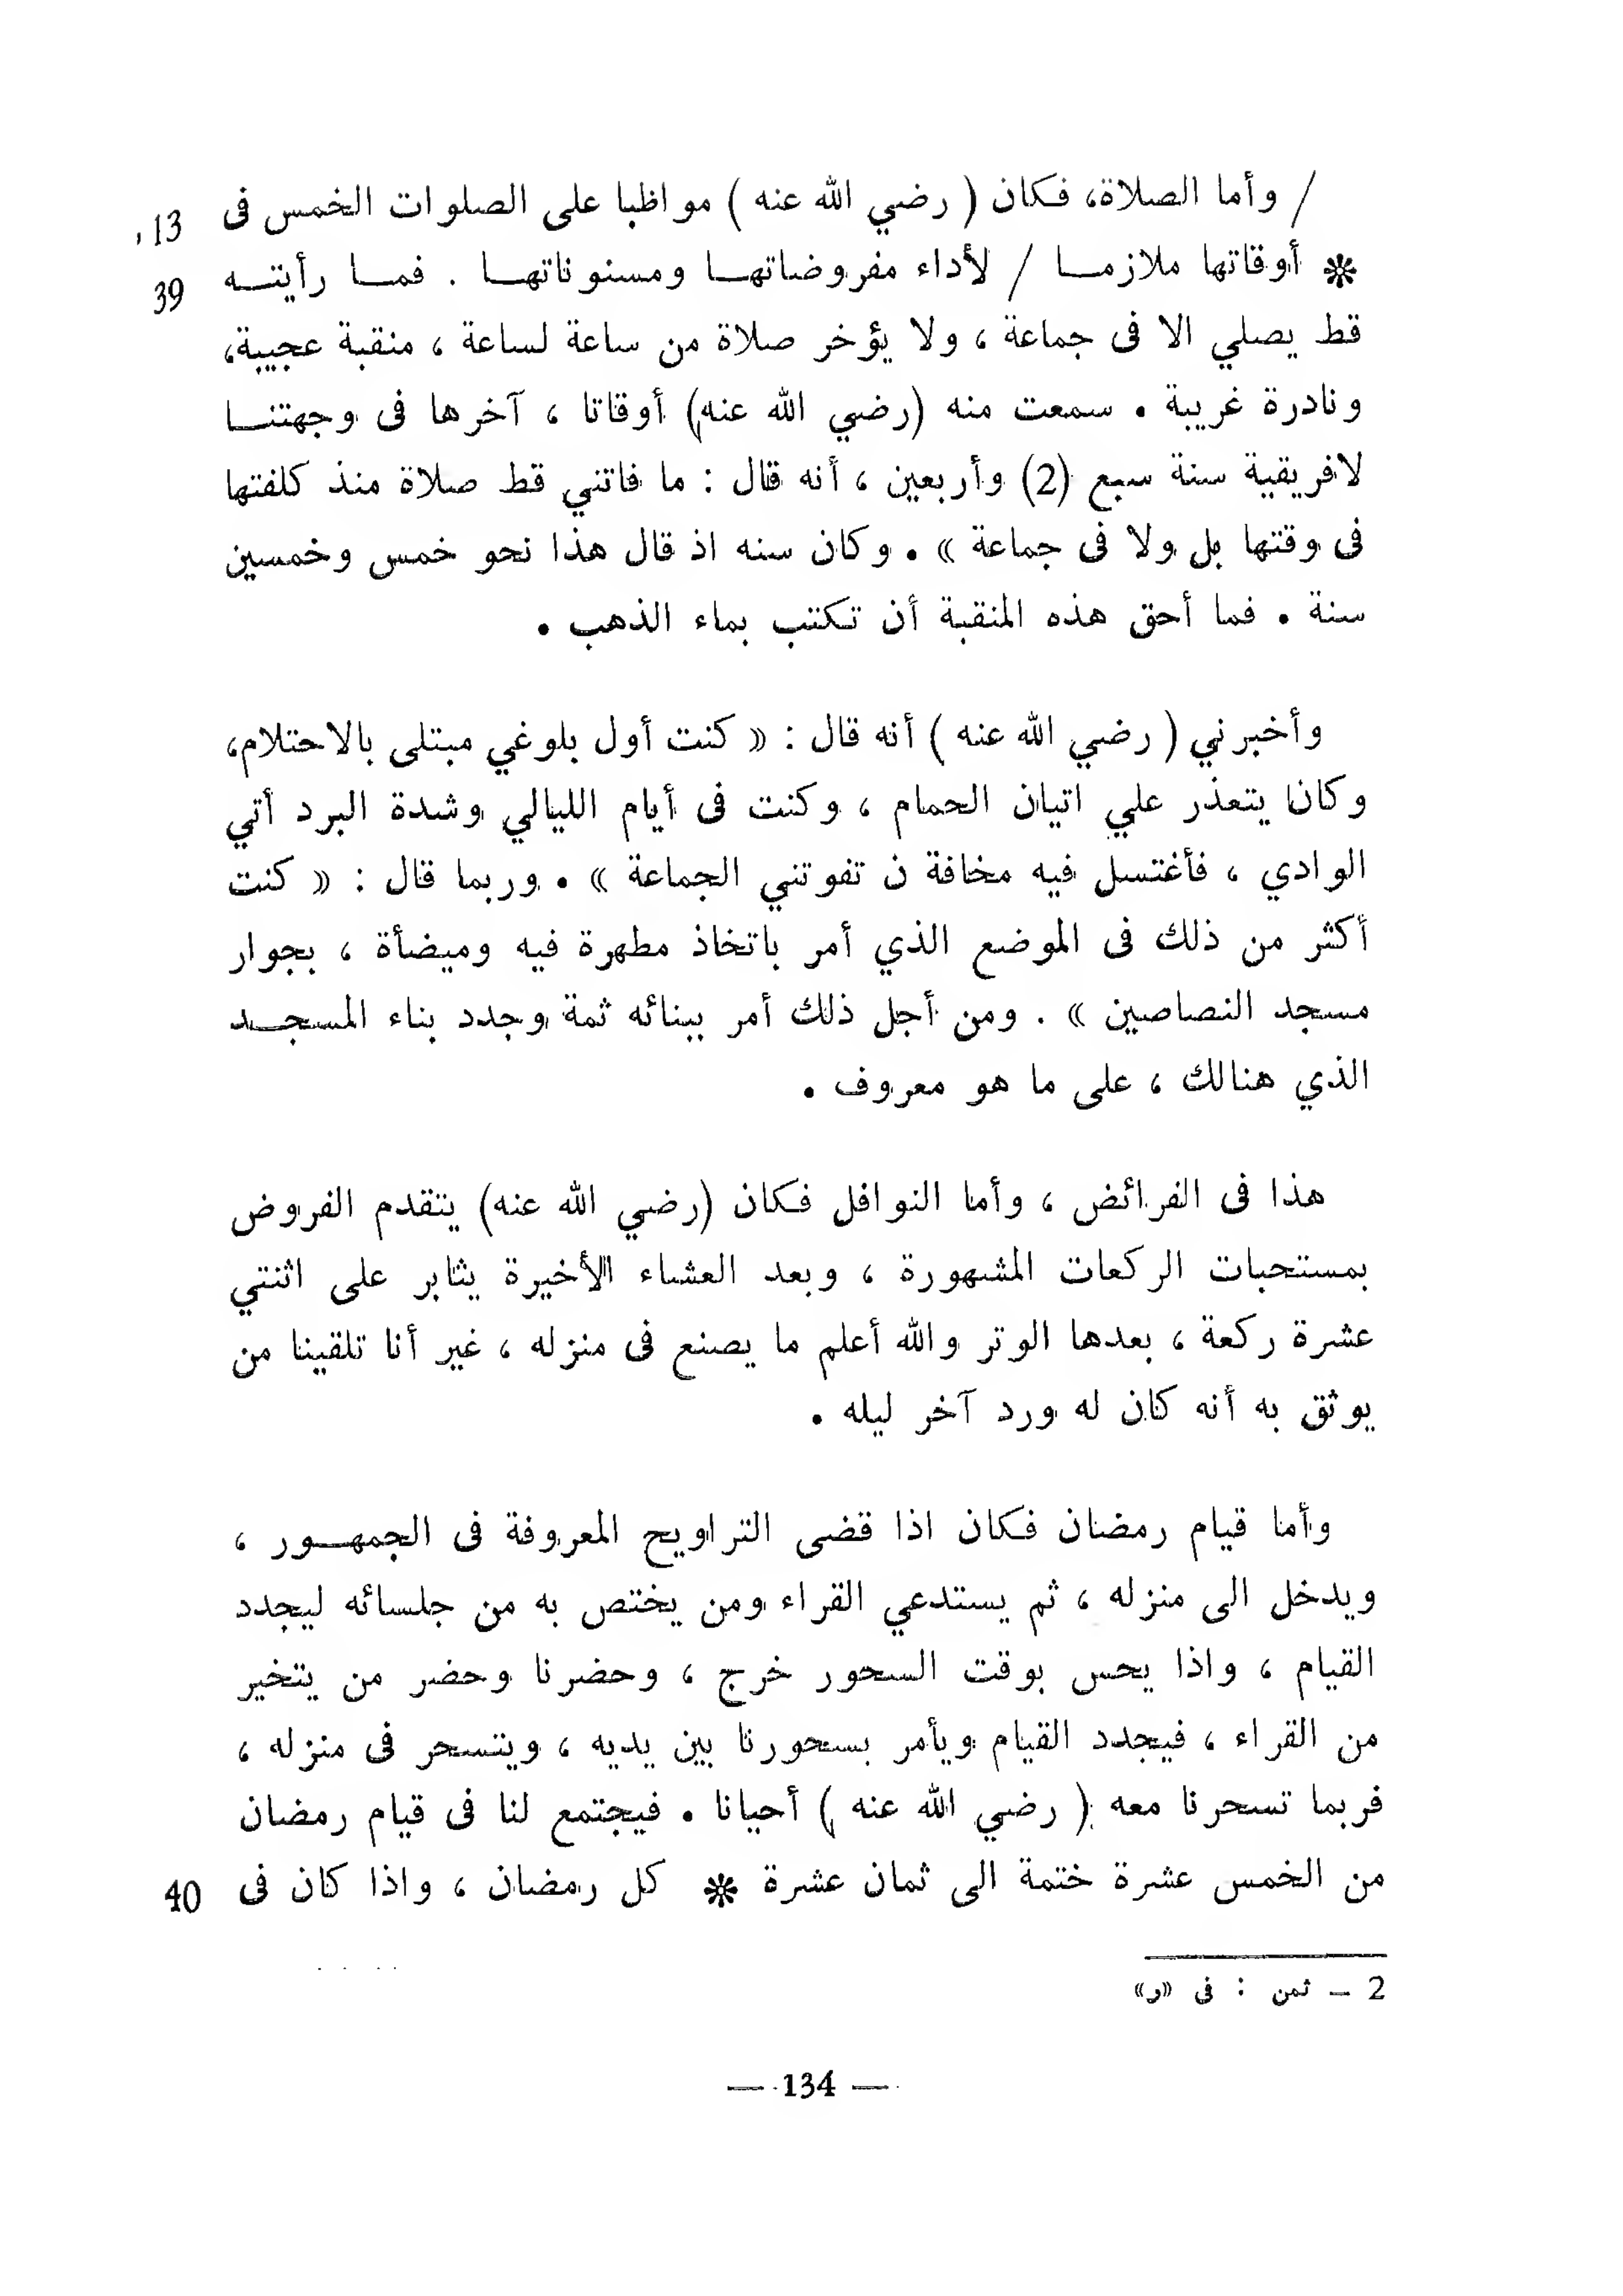 / وأما الصلاة، فكان ( رضي الله عنه ) مواظبا على الصلوات الخمس فى 13
* أوقاتها ملازما / لأداء مفروضاتها ومسنوناتها . فما رأيته 39
قط يصلي الا فى جماعة ، ولا يؤخر صلاة من ساعة لساعة ، منقبة عجيبة،
ونادرة غريبة . سمعت منه (رضي الله عنه) أوقاتا ، آخرها فى وجهتنا
لافريقية سنة سبع (2) وأربعين ، أنه قال : ما فاتني قط صلاة منذ كلفتها
فى وقتها بل ولا فى جماعة » . وكان سنه اذ قال هذا نحو خمس وخمسين
سنة . فما أحق هذه المنقبة أن تكتب بماء الذهب .
وأخبرني ( رضي الله عنه ) أنه قال : « كنت أول بلوغي مبتلى بالاحتلام،
وكان يتعذر علي اتيان الحمام ، وكنت فى أيام الليالي وشدة البرد أتي
الوادي ، فأغتسل فيه مخافة ن تفوتني الجماعة » . وربما قال : « كنت
أكثر من ذلك فى الموضع الذي أمر باتخاذ مطهرة فيه وميضأة ، بجوار
مسجد النصاصين » . ومن أجل ذلك أمر ببنائه ثمة وجدد بناء المسجد
الذي هنالك ، على ما هو معروف .
هذا فى الفرائض ، وأما النوافل فكان (رضي الله عنه) يتقدم الفروض
بمستحبات الركعات المشهورة ، وبعد العشاء الأخيرة يثابر على اثنتي
عشرة ركعة ، بعدها الوتر والله أعلم ما يصنع فى منزله ، غير أنا تلقينا من
يوثق به أنه كان له ورد آخر ليله .
وأما قيام رمضان فكان اذا قضى التراويح المعروفة فى الجمهور ،
ويدخل الى منزله ، ثم يستدعي القراء ومن يختص به من جلسائه ليجدد
القيام ، واذا يحس بوقت السحور خرج ، وحضرنا وحضر من يتخير
من القراء ، فيجدد القيام ويأمر بسحورنا بين يديه ، ويتسحر فى منزله ،
فربما تسحرنا معه ( رضي الله عنه ) أحيانا . فيجتمع لنا فى قيام رمضان
من الخمس عشرة ختمة الى ثمان عشرة * كل رمضان ، واذا كان فى 40
2 – ثمن : فى «ر»
— 134 —